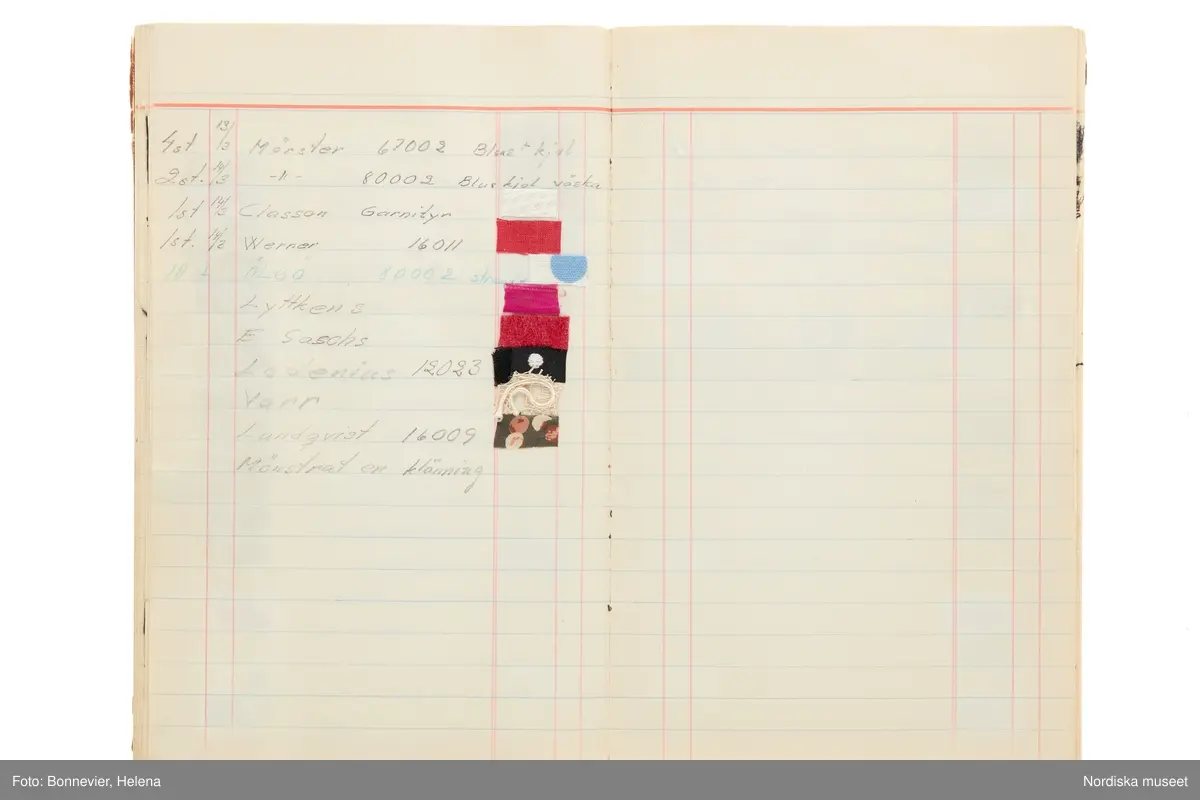 4st 13/3 Mönster 67002 Blus + kjol
2st. 14/3 -11- 80002 Blus kjol väska
1st 14/3 Classon Garnityr
1st. 14/2 Werner 16011
80002
Lyttkens
E Sasohs
Lodenius 12023
Vann
Lundqvist 16009
Mönstrat en klänning
Foto: Bonnevier, Helena
Nordiska museet